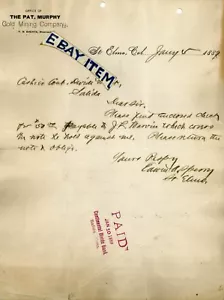 OFFICE OF
THE PAT. MURPHY
Gold Mining Company,
EBAY ITEM
St Elmo, Col. Jany 5 1889
Salida
Dear Sir.
Please find enclosed check
for payable to J.R. which covers
the note he holds against me. Please return the
note & oblige.
Yours Resp'y
St Elmo.
PAID
JAN 10 1889
Continental Divide Bank